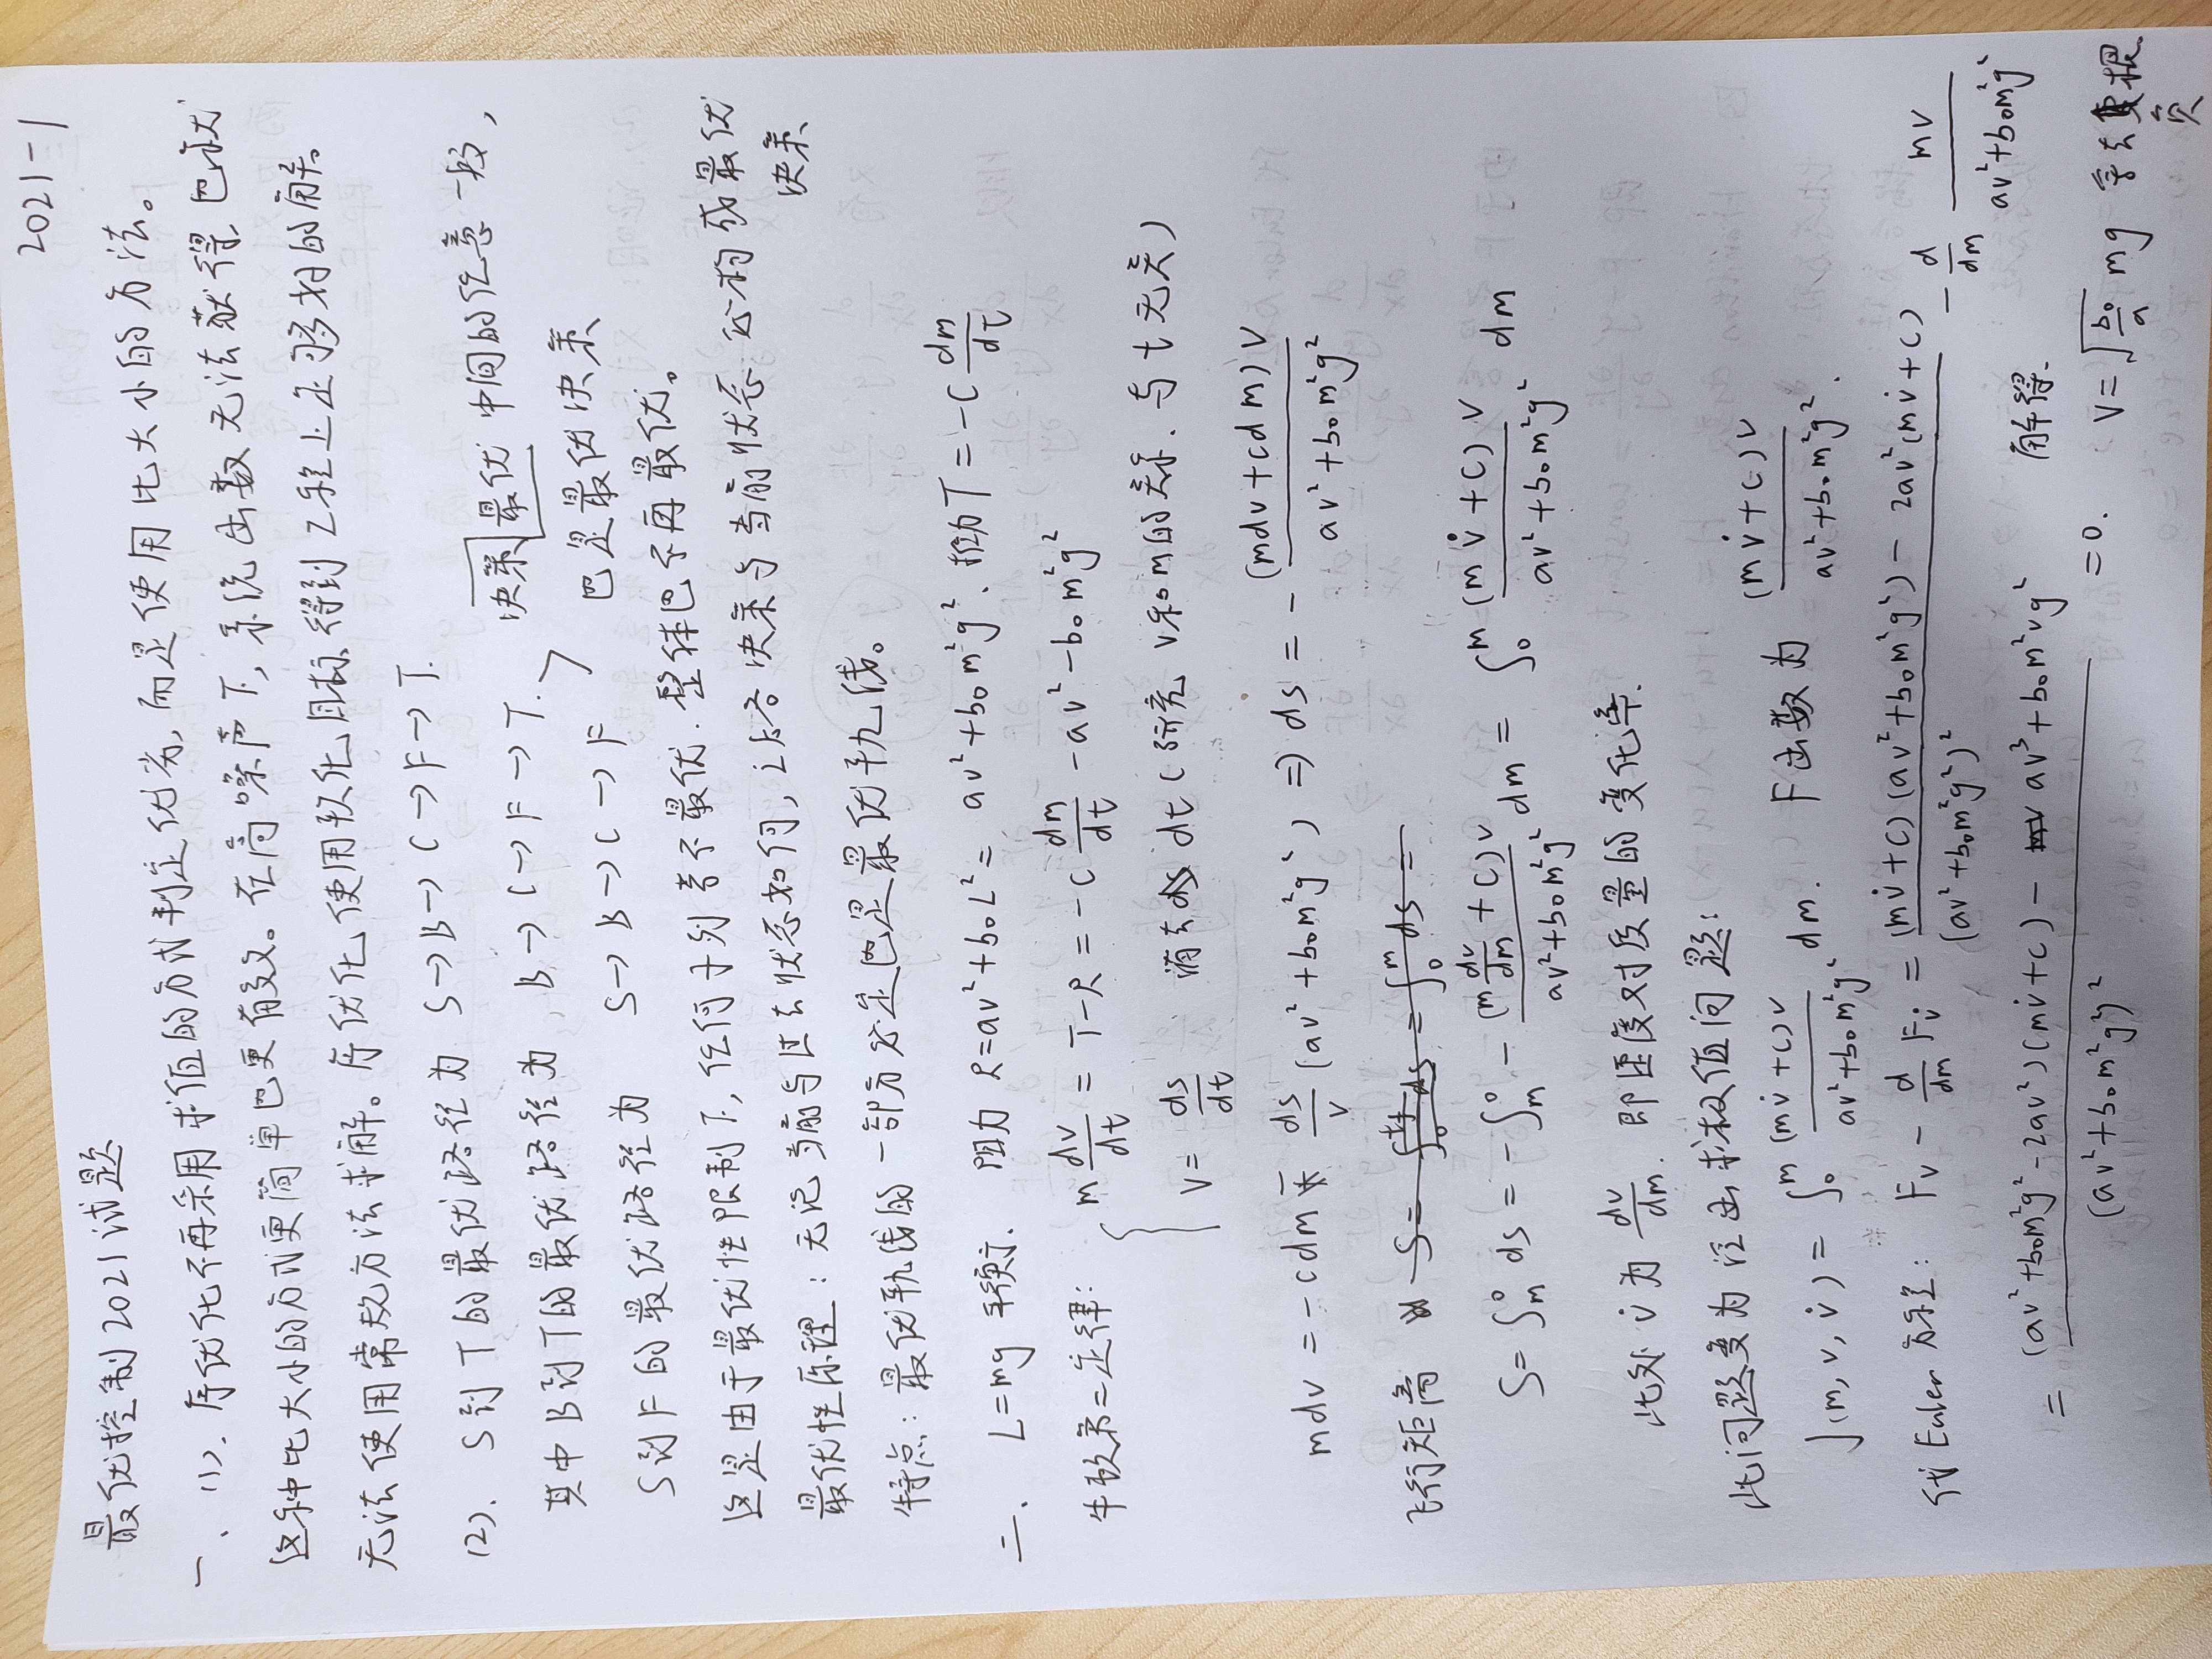 2021-1
最优控制2021试题
一、(1). 序优化不再采用求值的方式判定优劣, 而是使用比大小的方法。
这种比大小的方式更简单也更有效。在高噪声下, 系统函数无法获得, 也就
无法使用常规方法求解。序优化使用软化目标得到工程上足够好的解。
(2). S到T的最优路径为 S→B→C→F→T.
其中B到T的最优路径为 B→C→F→T. 决策最优中间的任意一段,
S到F的最优路径为 S→B→C→F 也是最优决策
这是由于最优性限制下, 任何子列若不最优. 整体也不再最优。
最优性原理: 无论当前与过去状态如何, 让路决策与当前状态必构成最优决策
特点: 最优轨线的一部分必定也是最优子轨线。
二、L=mg 平衡. 阻力 R=av²+b₀L²= av²+b₀m²g². 推力T=-C dm/dt
牛顿第二定律: { m dv/dt = T-R = -C dm/dt -av²-b₀m²g²
V= ds/dt 消去 dt (研究 v和m的关系. 与t无关)
mdv = -cdm - ds/v (av²+b₀m²g²) ⇒ ds = - (mdv+cdm)v / av²+b₀m²g²
飞行距离 S= -∫ds = ∫₀^m ds =
S= ∫_m^0 ds = -∫_m^0 (m dv/dm + c)v / av²+b₀m²g² dm = ∫₀^m (mv̇+c)v / av²+b₀m²g² dm
此处 v̇ 为 dv/dm. 即速度对质量的变化率.
此问题变为泛函求极值问题:
J(m,v,v̇) = ∫₀^m (mv̇+c)v / av²+b₀m²g² dm. F函数为 (mv̇+c)v / av²+b₀m²g².
代Euler方程: Fv - d/dm Fv̇ = (mv̇+c)(av²+b₀m²g²) - 2av²(mv̇+c) / (av²+b₀m²g²)² - d/dm mv / av²+b₀m²g²
= (av²+b₀m²g²-2av²)(mv̇+c) - av³+b₀m²vg² / (av²+b₀m²g²)² =0. 解得. V=√(b₀/a) mg 舍去负根.